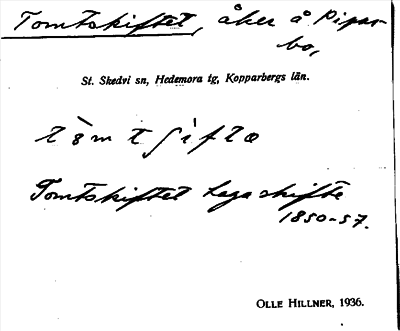 Tomtskiftet, åker å Pipar-
bo,
St. Skedvi sn, Hedemora tg, Kopparbergs län.
Tomtskiftet Laga skifte
1850-57.
OLLE HILLNER, 1936.